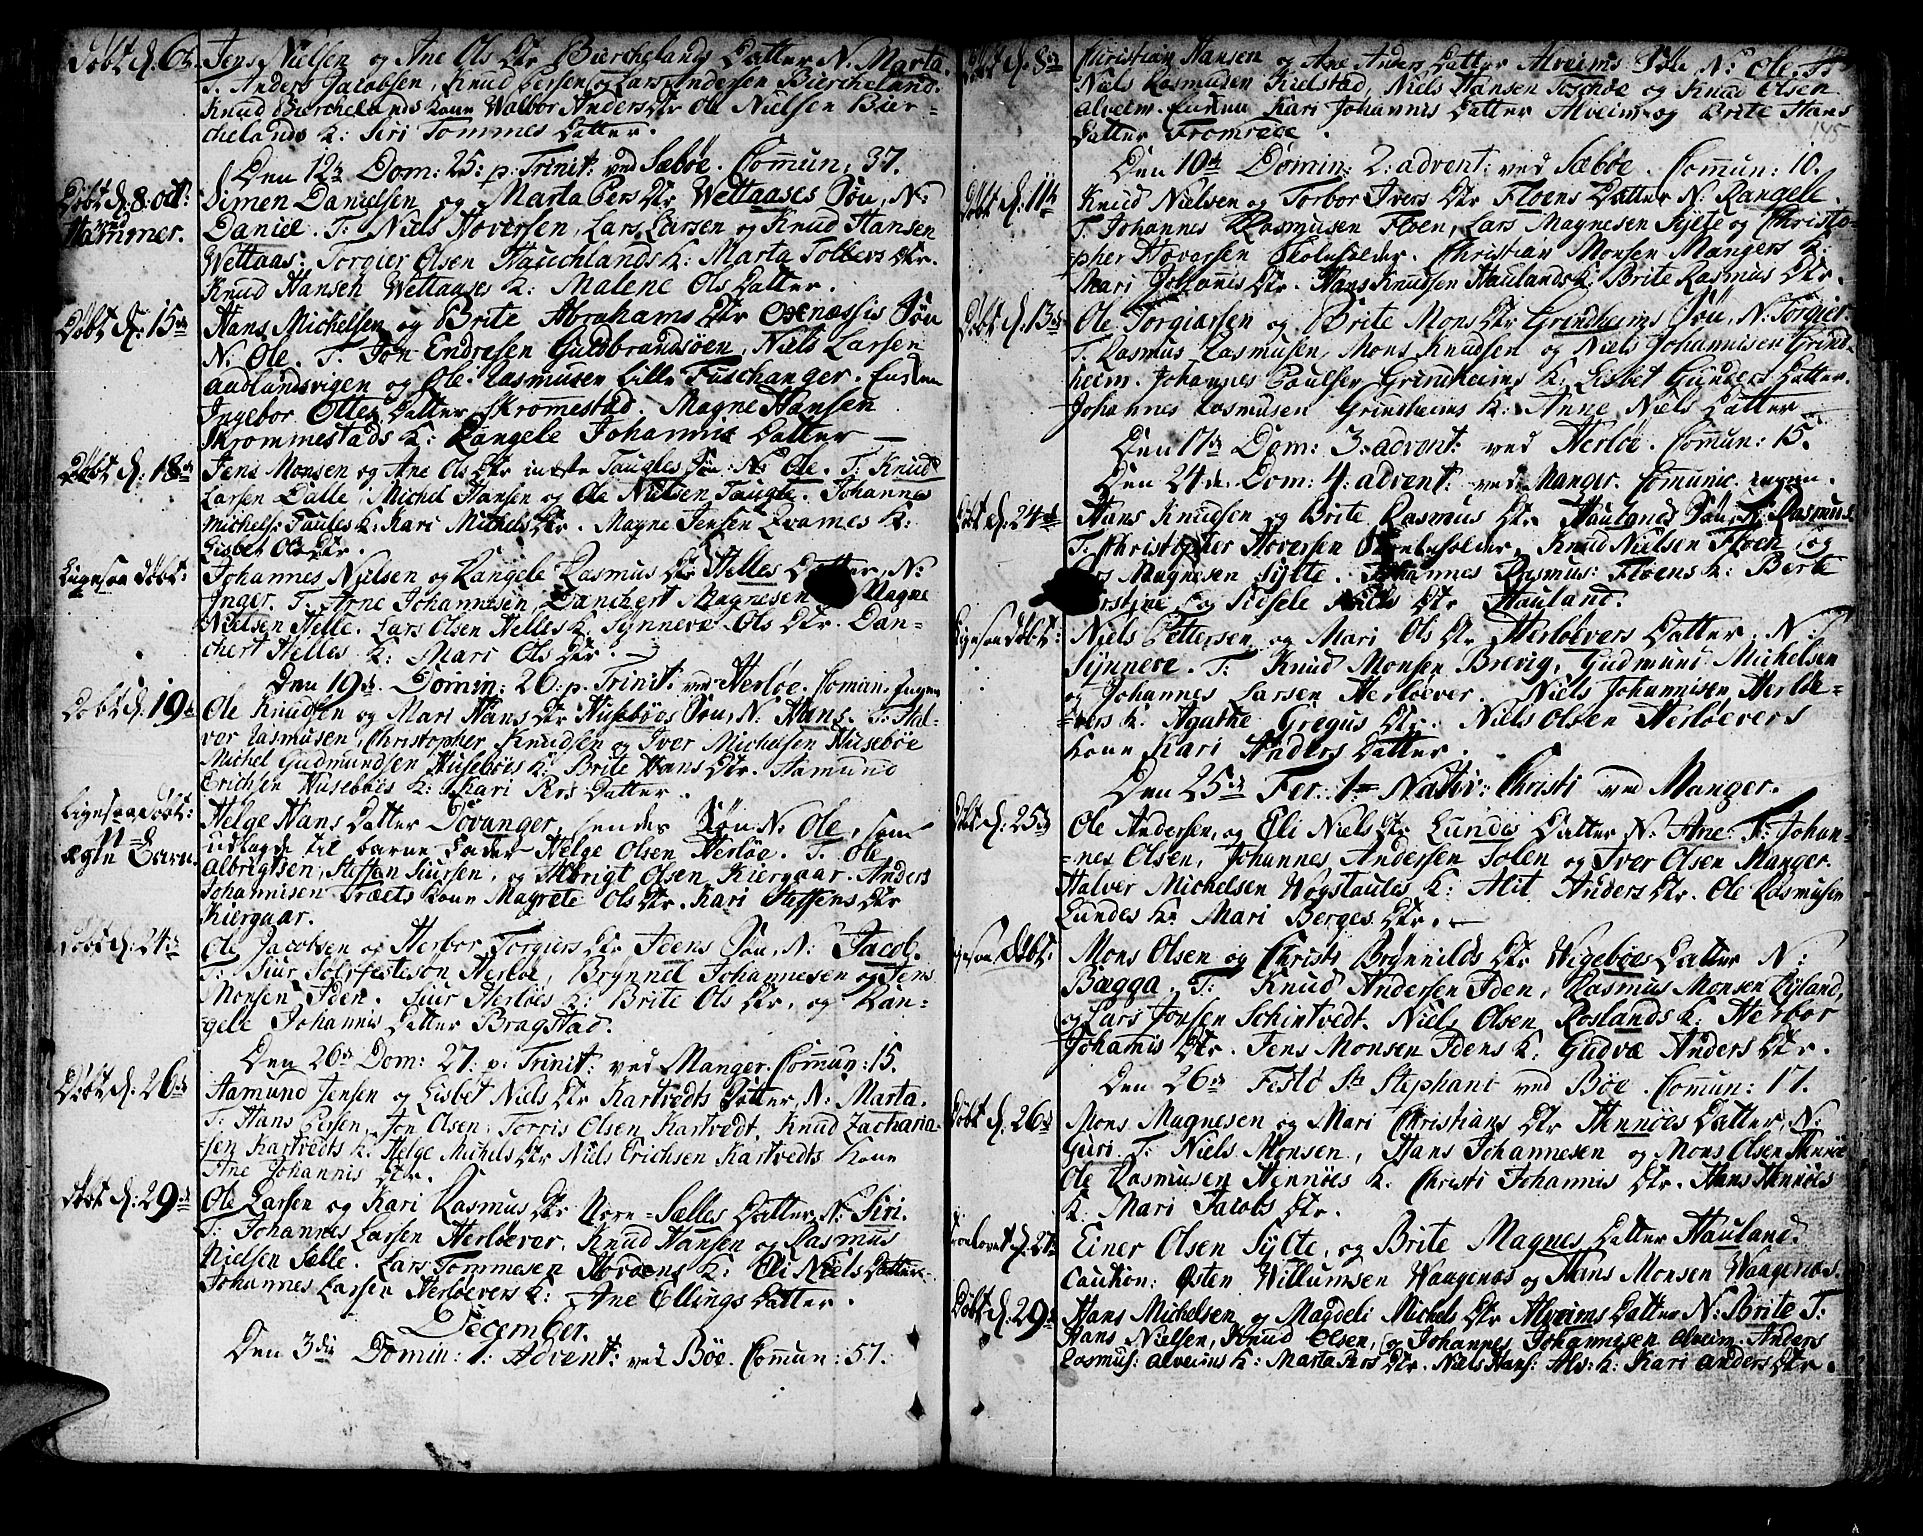 Døbt d. 6te Jens Nielsen og Ane Ols Dtr Bierchelands Datter N. Marta.
T. Anders Jacobsen, Knud Persen og Lars Andersen Biercheland.
Knud Bierchelands kone Walbor Anders Dtr Ole Nielsen Bier-
chelands K: Siri Tommes Datter.
Den 12te Dom: 25: p: Trinit: ved Sæbøe. Comun: 37.
Døbt d. 8. oct: Simen Danielsen og Marta Pers Dtr Wettaases Søn, N:
Hammer. Daniel. T: Niels Hoversen, Lars Larsen og Knud Hansen
Wettaas: Torgier Olsen Hauchlands K: Marta Tolbers Dtr.
Knud Hansen Wettaases K: Malene Ols Datter.
Døbt d: 15de Hans Michelsen og Brite Abrahams Dtr Oxenæssis Søn
N: Ole. T: Jon Endresen Guldbrandsøen, Niels Larsen
Aadlandsvigen og Ole Rasmusen Lille Fuschanger. Enken
Ingebor Ottes Datter Skromestad. Magne Hansen
Skrommestads K: Rangele Johannis Datter —
Døbt d: 18de Jens Monsen og Ane Ols Dtr inste Taugles Søn: N: Ole. T: Knud
Larsen Dalle, Michel Hansen og Ole Nielsen Taugle. Johannes
Michels: Taules K: Kari Michels Dtr. Magne Jensen Qvames K:
Lisbet Ols Dtr.
Ligesaa Døbt: Johannes Nielsen og Rangele Rasmus Dtr Helles Datter, N:
Inger. T. Arne Johannesen, Danchert Magnesen Magne
Nielsen Helle. Lars Olsen Helles K. Synneve Ols Dtr. Dan-
chert Helles K: Mari Ols Dtr.
Den 19de Domin: 26: p: Trinit: ved Herløe. Comun: Ingen
Døbt d. 19de Ole Knudsen og Mari Hans Dtr Husebøes Søn, N: Hans. T: Hal-
vor Rasmusen, Christopher Knudsen og Iver Michelsen Husebøe
Michel Gudmundsen Husebøes K: Brite Hans Dtr. Hamund
Erichsen Husebøes K: Kari Pers Datter.
Ligesaa Døbt: Helge Hans Datter Tovanger, hendes Søn N: Ole, som
U-
ægte Barn. udlagde til barne Fader Helge Olsen Herløe. T. Ole
Albrigtsen, Steffen Siursen, og Albrigt Olsen Kiergaar. Anders
Johannisen Træets Kone Magrete Ols Dtr. Kari Steffens Dtr
Kiergaar.
Døbt d. 24de Ole Jacobsen og Herbor Torgiers Dtr Idens Søn, N: Jacob.
T: Siur Solfesteson Herløe, Brynnel Johannesen og Jens
Monsen Iden. Siur Herløes K: Brite Ols Dtr. og Ran-
gele Johannis Datter Bragstad.
Den 26de Dom: 27: p: Trinit: ved Manger. Comun: 15.
Døbt d. 26de Aamund Jensen og Lisbet Niels Dtr Kartvedts Datter, N: Marta.
T: Hans Persen, Jon Olsen, Torris Olsen Kartvedt. Knud Zacharia-
sen Kartvedts K: Helge Michels Dtr Niels Erichsen Kartvedts Kone
Ane Johannis Dtr.
Døbt d. 29de Ole Larsen og Kari Rasmus Dtr Norre-Sælles Datter N: Siri.
T: Johannes Larsen Herløevær. Knud Hansen og Rasmus
Nielsen Sælle. Lars Tommesen Hordens K: Eli Niels Datter
Johannes Larsen Herløevers K: Ane Ellings Datter.
December.
Den 3die Domin: 1: Advent: ved Bøe. Comun: 57.
Døbt d. 8de Christian Hansen og Ane Anders Datter Alveims Søn N: Ole. T:
Niels Rasmusen Kielstad, Niels Hansen Toschøe og Knud Olsen
Alveim. Enken Kari Johannis Datter Alveim og Brite Hans
Datter Fromrøge.
145
Den 10de Domin: 2: advent: ved Sæbøe. Comun: 10.
Døbt d: 11te Knud Nielsen og Torbor Ivers Dtr Floens Datter N: Rangele.
T. Johannes Rasmusen Floen, Lars Magnesen Sylte og Christo-
pher Hoversen Skoleholder. Christian Monsen Mangers K:
Mari Johannis Dtr. Hans Knudsen Haulands K: Brite Rasmus Dtr.
Døbt d. 13de Ole Torgiersen og Brite Mons Dtr Grindheims Søn, N: Torgier.
T. Rasmus Rasmusen, Mons Knudsen og Niels Johannisen Grind-
heim. Johannes Poulsen Grindheims K: Lisbet Gunders Datter.
Johannes Rasmusen Grindheims K: Anne Niels Datter.
Den 17de Dom: 3: advent: ved Herløe. Comun: 15.
Den 24de Dom: 4: advent: ved Manger. Comunic. ingen.
Døbt d: 24de Hans Knudsen og Brite Rasmus Dtr Haulands Søn, N: Rasmus.
T: Christopher Hoversen Skoleholder, Knud Nielsen Floen og
Lars Magnesen Sylte. Johannes Rasmus: Floens K: Berte
og Sidsele Niels Dtr Hauland.
Ligesaa Døbt: Niels Pettersen og Mari Ols Dtr Herløevers Datter N:
Synneve. T: Knud Monsen Brevig, Gudmund Michelsen
og Johannes Larsen Herløever. Niels Johannisen Herløe-
vers K: Agathe Gregus Dtr. Niels Olsen Herløevers
Kone Kari Anders Datter.
Den 25de Fer. 1ma Nativ: Christi ved Manger.
Døbt d: 25de Ole Andersen, og Eli Niels Dtr Lundes Datter N: Ane. T: Johan-
nes Olsen, Johannes Andersen Solen og Iver Olsen Manger.
Halver Michelsen Wogstaules K: Alit Anders Dtr. Ole Rasmusen
Lundes K: Mari Berges Dtr.
Ligesaa Døbt. Mons Olsen og Christi Brynnilds Dtr Wigebøes Datter N:
Bagga. T: Knud Andersen Iden, Rasmus Monsen Ryland,
og Lars Jonsen Schintvedt. Niels Olsen Roslands K: Herbor
Johannis Dtr. Jens Monsen Idens K: Gudvæ Anders Dtr.
Den 26de Festo St. Stephani ved Bøe. Comun: 17.
Døbt d. 26de Mons Magnesen og Mari Christians Dtr Hennøes Datter, N:
Guri. T: Niels Monsen, Hans Johannesen og Mons Olsen Hennøe
Ole Rasmusen Hennøes K: Christi Johannis Dtr. Hans Hennøes
K. Mari Jacobs Dtr.
Troelovet d. 27de Einer Olsen Sylte, og Brite Magnes Datter Hauland.
Caution: Østen Willumsen Waagenæs og Hans Monsen Waagenæs.
Døbt d. 29de Hans Michelsen og Magdeli Michels Dtr Alveims Datter N: Brite T:
Hans Nielsen, Knud Olsen, og Johannes Johannisen Alveim. Anders
Rasmus: Alveims K: Marta Pers Dtr. Niels Hans: Alv: K: Kari Anders Dtr.